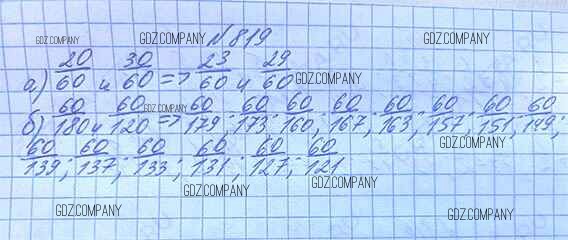 GDZ.COMPANY GDZ.COMPANY №819 GDZ.COMPANY
а) 20/60 и 30/60 => 23/60 и 29/60 GDZ.COMPANY
б) 60/180 и 60/120 GDZ.COMPANY => 60/179; 60/173; 60/160; 60/167; 60/163; 60/157; 60/151; 60/149;
GDZ.COMPANY
60/139; 60/137; 60/133; 60/131; 60/127; 60/121
GDZ.COMPANY GDZ.COMPANY
GDZ.COMPANY GDZ.COMPANY